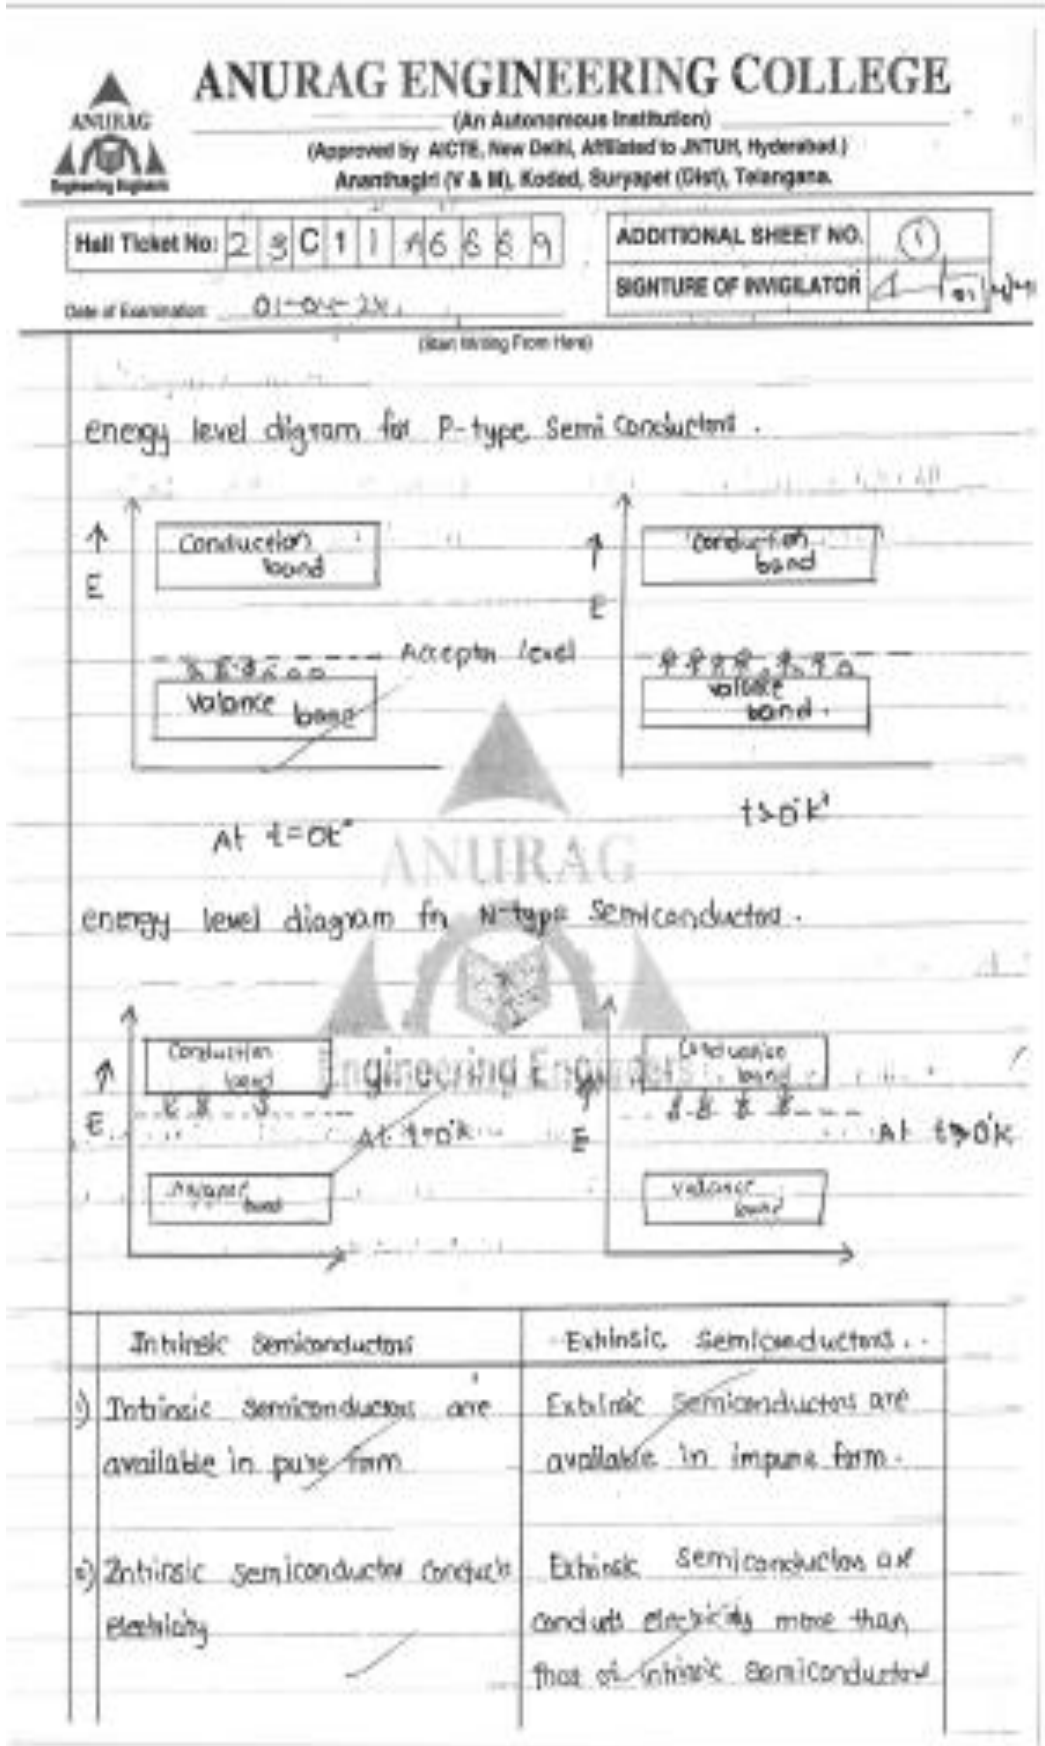 ANURAG ENGINEERING COLLEGE
(An Autonomous Institution)
(Approved by AICTE, New Delhi, Affiliated to JNTUH, Hyderabad.)
Ananthagiri (V & M), Kodad, Suryapet (Dist), Telangana.
ANURAG
Engineering Engineers
Hall Ticket No: 2 3 C 1 1 A 6 6 6 9
ADDITIONAL SHEET NO. 1
SIGNTURE OF INVIGILATOR
Date of Examination:
(Start Writing From Here)
energy level digram for P-type Semi Conductors.
E
Conduction
band
Acceptor level
Valance band
At t=0k°
E
Conduction
band
valance
band.
t>0°k
ANURAG
Engineering Engineers
energy level diagram for N-type Semiconductors.
E
Conduction
band
At t=0°k
Valance
band
E
Conduction
band
At t>0°k
valance
band
Intrinsic Semiconductors
Extrinsic Semiconductors.
1) Intrinsic semiconductors are
available in pure form
Extrinsic semiconductors are
available in impure form.
2) Intrinsic semiconductor conducts
electricity
Extrinsic semiconductors are
conducts electricity more than
that of intrinsic semiconductors